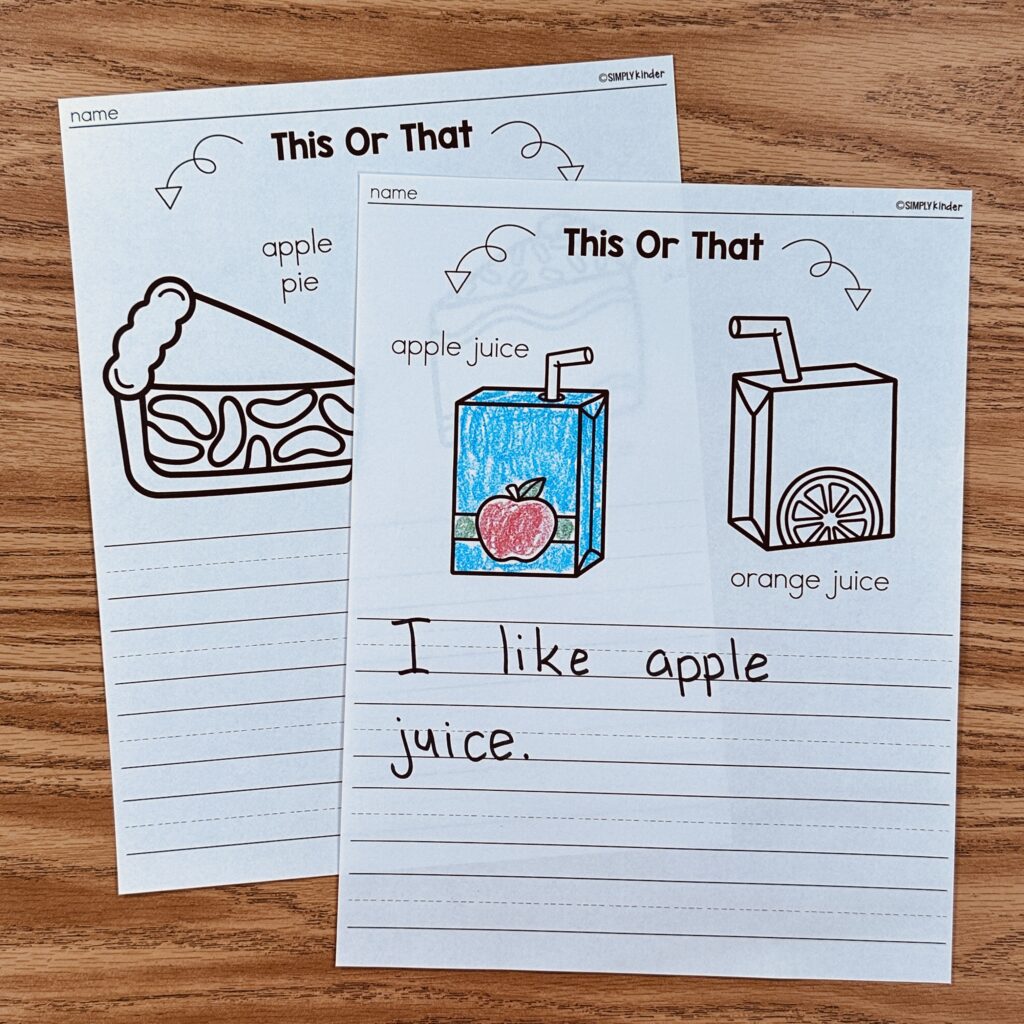 ©SIMPLYkinder
name
This Or That
apple
pie
name
©SIMPLYkinder
This Or That
apple juice
orange juice
I like apple
juice.